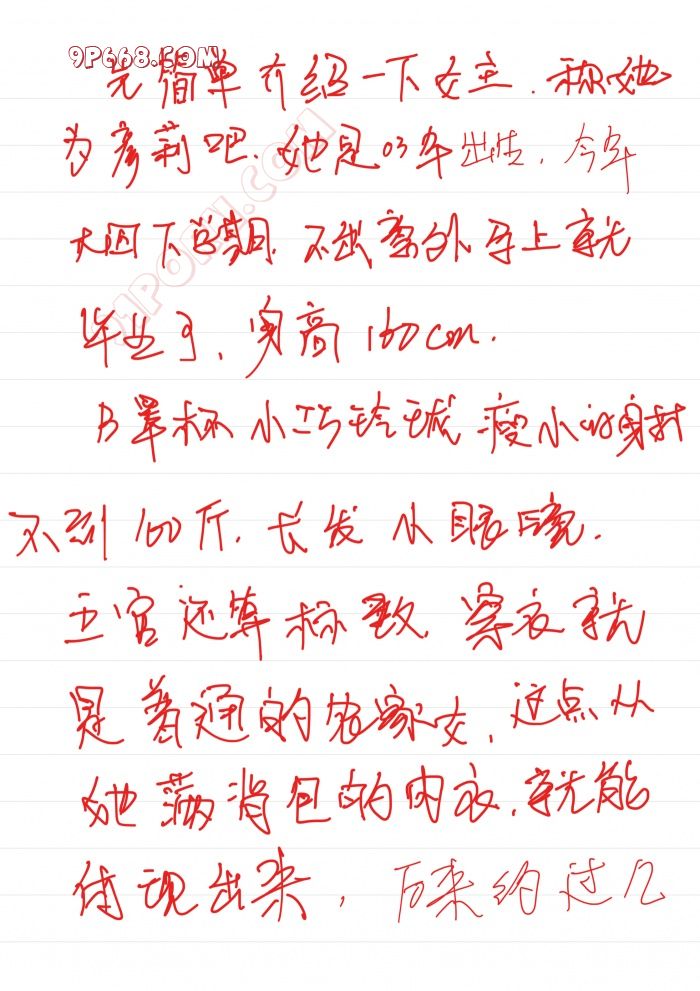 9P668.COM
先简单介绍一下女主.称她
为彦莉吧.她是03年出生.今年
大四下学期.不出意外马上就
91PORN.COM
毕业了、身高160cm.
B罩杯 小巧玲珑 瘦小的身材
不到100斤.长发 小眼睛.
五官还算标致.穿衣就
是普通的居家女.这点从
她满背包的内衣.就能
体现出来，后来约过几